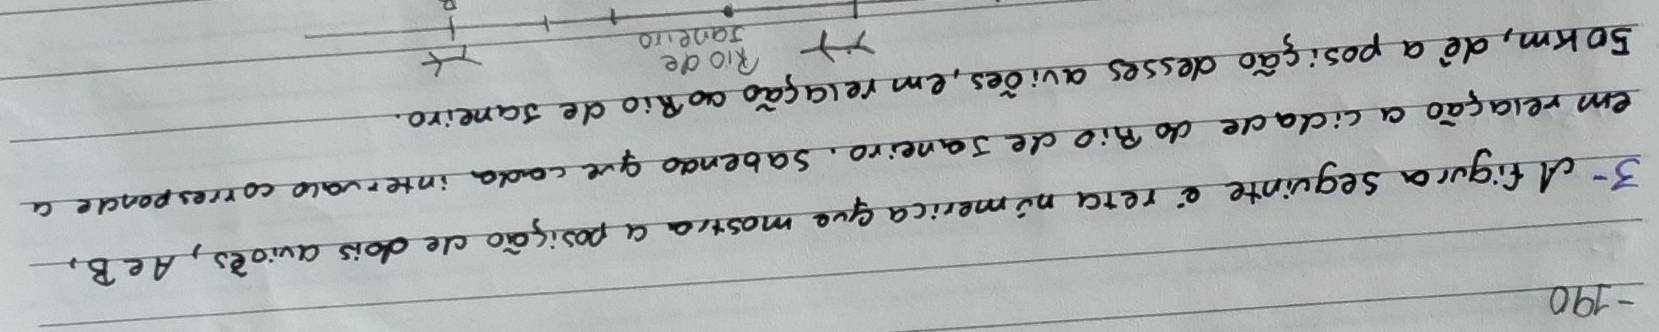 -190
3- A figura seguinte é reta númerica que mostra a posição de dois aviões, A e B,
em relação a cidade do Rio de Janeiro. Sabendo que cada intervalo corresponde a
50 Km, dê a posição desses aviões, em relação ao Rio de Janeiro.
Rio de
Janeiro